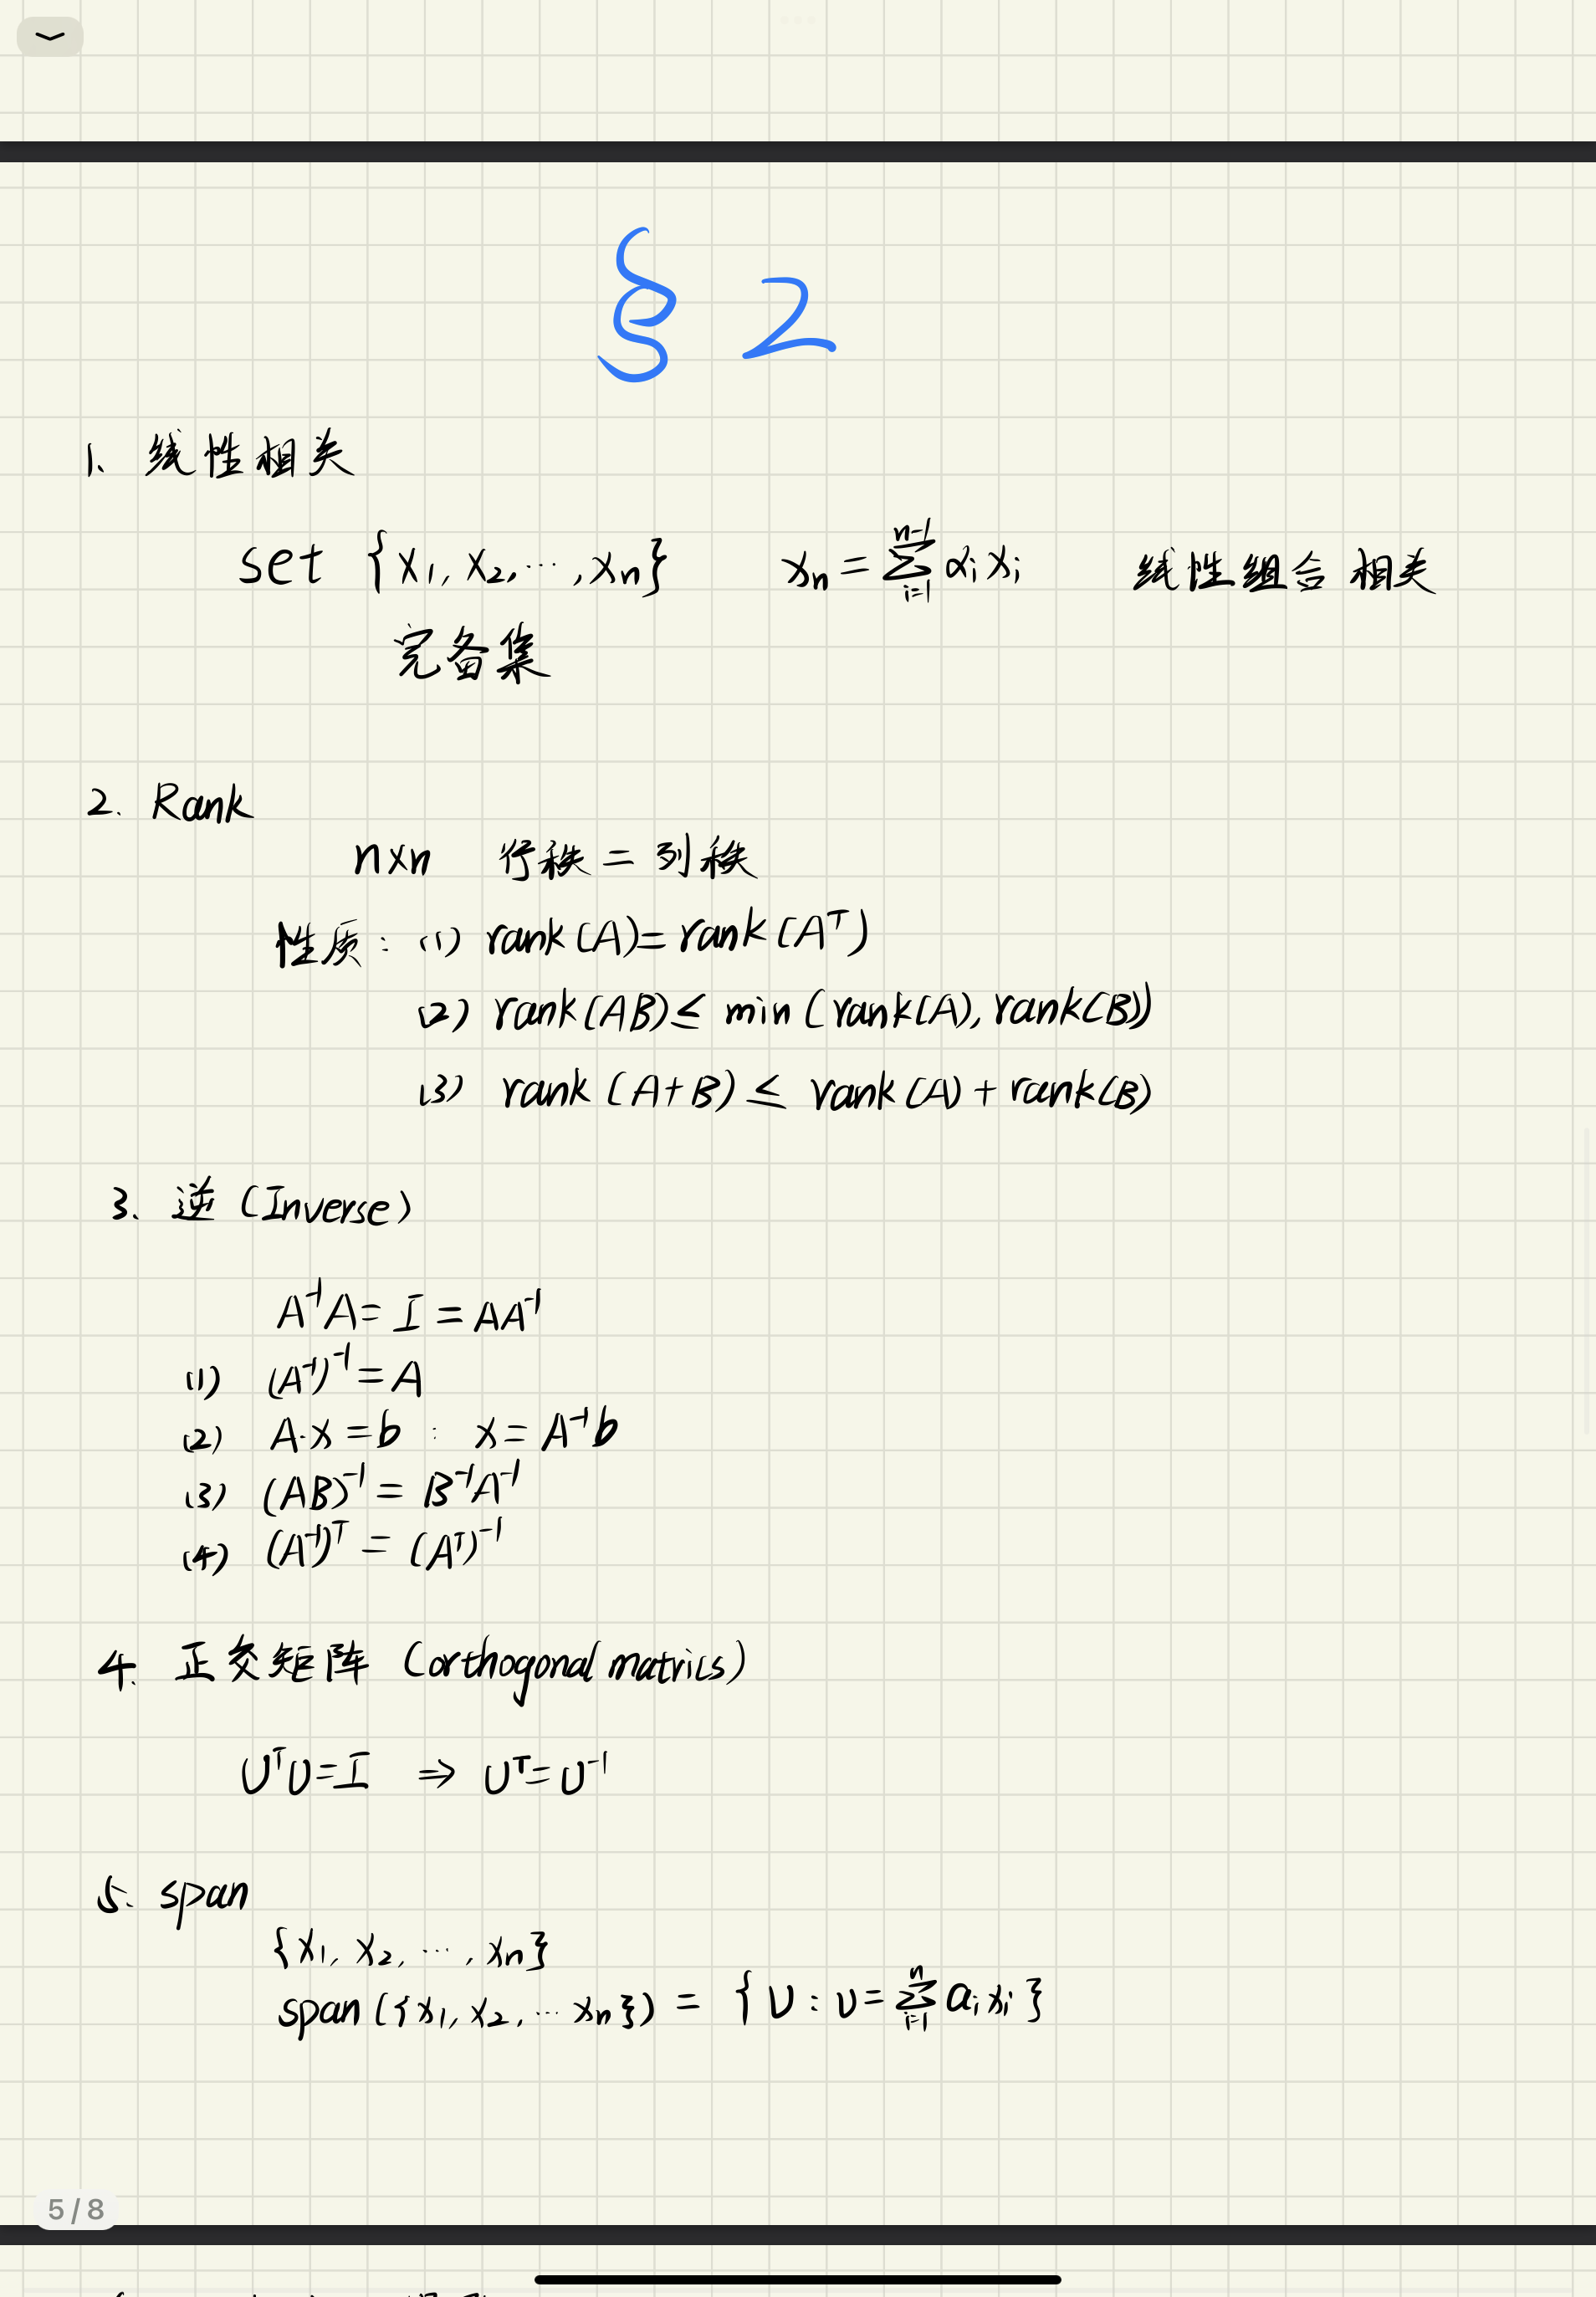 § 2
1、线性相关
set {x₁, x₂, ⋯, xₙ} xₙ = ∑ᵢ₌₁ⁿ⁻¹ αᵢxᵢ 线性组合 相关
完备集
2. Rank
n×n 行秩 = 列秩
性质: (1) rank(A) = rank(Aᵀ)
(2) rank(AB) ≤ min(rank(A), rank(B))
(3) rank(A+B) ≤ rank(A) + rank(B)
3、逆 (Inverse)
A⁻¹A = I = AA⁻¹
(1) (A⁻¹)⁻¹ = A
(2) A·x = b : x = A⁻¹b
(3) (AB)⁻¹ = B⁻¹A⁻¹
(4) (A⁻¹)ᵀ = (Aᵀ)⁻¹
4. 正交矩阵 (orthogonal matrics)
UᵀU = I ⇒ Uᵀ = U⁻¹
5、span
{x₁, x₂, ⋯, xₙ}
span({x₁, x₂, ⋯ xₙ}) = {υ : υ = ∑ᵢ₌₁ⁿ aᵢxᵢ}
5 / 8